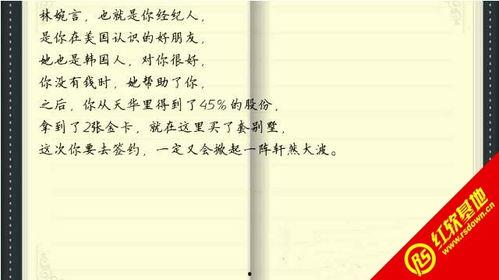 林婉言，也就是你经纪人，
是你在美国认识的好朋友，
她也是韩国人，对你很好，
你没有钱时，她帮助了你，
之后，你从天华里得到了45%的股份，
拿到了2张金卡，就在这里买了套别墅，
这次你要去签约，一定又会掀起一阵轩然大波。
RS
红软基地
www.rsdown.cn